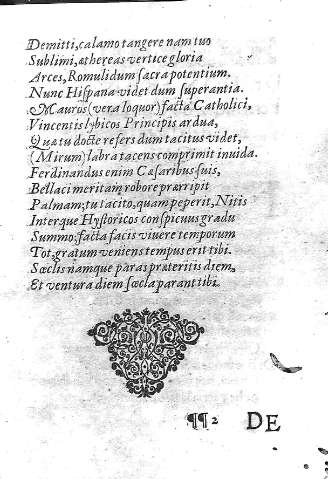 Demitti, calamo tangere nam tuo
Sublimi, æthereas vertice gloria
Arces, Romulidum sacra potentium.
Nunc Hispana videt dum superantia.
Mauros (vera loquor) facta Catholici,
Vincentis lybicos Principis ardua,
Quæ tu docte refers dum tacitus videt,
(Mirum) labra tacens comprimit inuida.
Ferdinandus enim Cæsaribus suis,
Bellaci meritam robore præripit
Palmam; tu tacito, quam peperit, Nitis
Interque Hystoricos conspicuus gradu
Summo; facta facis viuere temporum
Tot, gratum veniens tempus erit tibi.
Sæclis namque paras præteritis diem,
Et ventura diem sæcla parant tibi.
¶¶2 DE